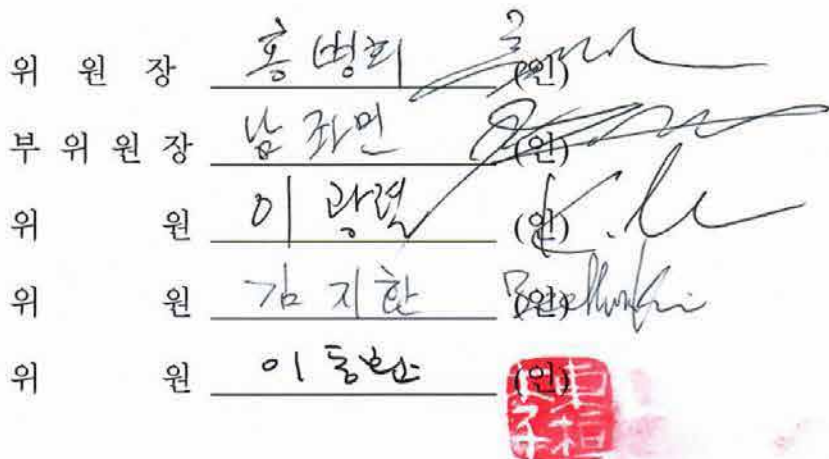 위 원 장 홍병희 (인)
부 위 원 장 남좌민 (인)
위 원 이광렬 (인) K. Lee
위 원 김지환 (인)
위 원 이동환 (인)